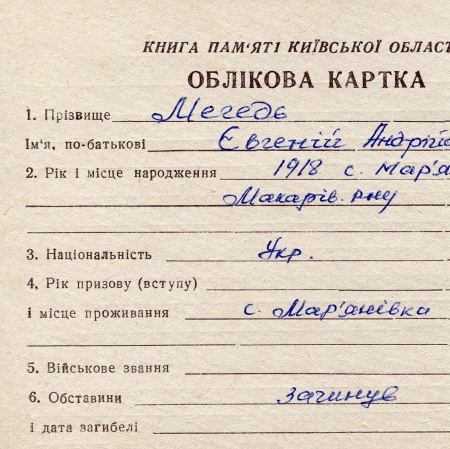 КНИГА ПАМ'ЯТІ КИЇВСЬКОЇ ОБЛАСТ
ОБЛІКОВА КАРТКА
1. Прізвище Мегедь
Ім'я, по-батькові Євгеній Андрій
2. Рік і місце народження 1918 с. Мар'я
Макарів. р-ну
3. Національність Укр.
4. Рік призову (вступу)
і місце проживання с. Мар'янівка
5. Військове звання
6. Обставини загинув
і дата загибелі